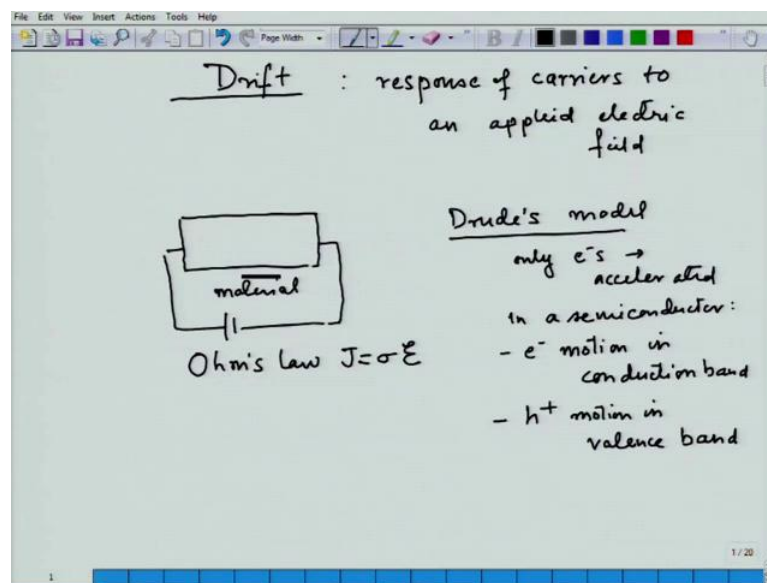 File Edit View Insert Actions Tools Help
Page Width
Drift : response of carriers to
an appleid electric
field
material
Ohm's law J=σℰ
Drude's model
only e⁻s →
accelerated
in a semiconductor:
- e⁻ motion in
conduction band
- h⁺ motion in
valence band
1 / 20
1